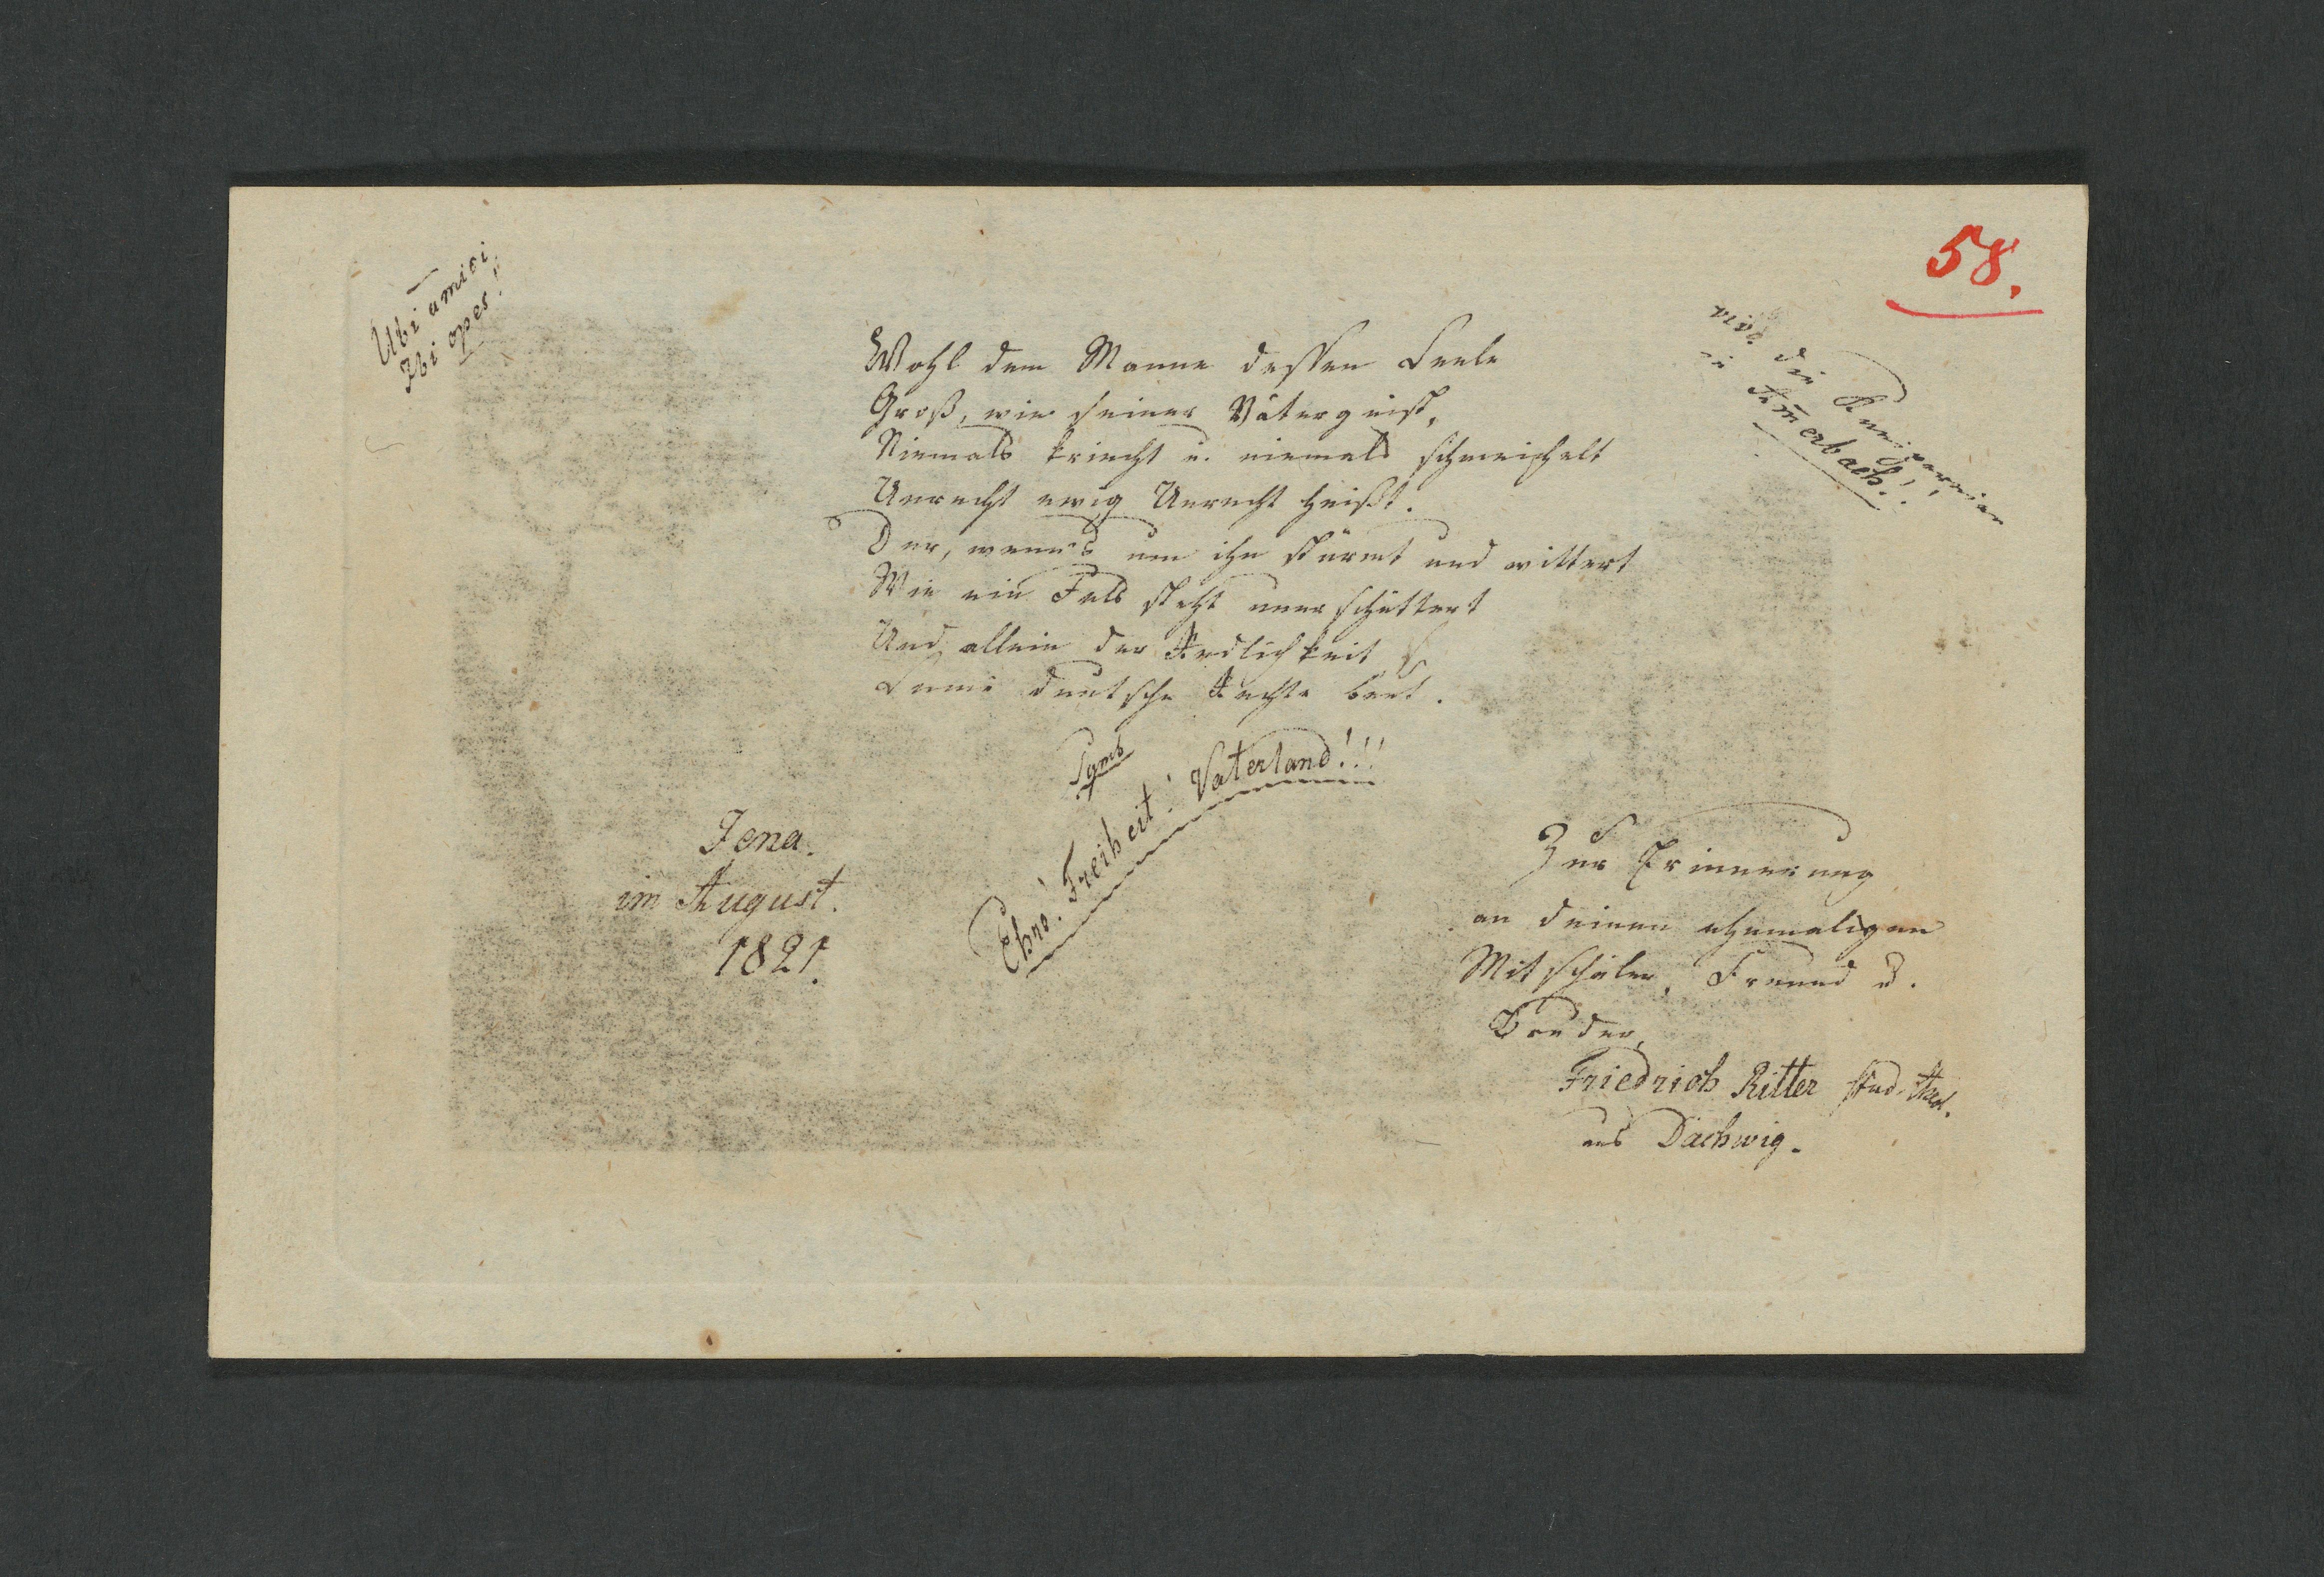 58.
Ubi amici
Ibi opes!
vivb. die Kneipereien
in Am̄erbach!!!
Wohl dem Manne dessen Seele
Groß, wie seiner Väter geist,
Niemals kriecht u. niemals schmeichelt
Unrecht ewig Unrecht heißt.
Der, wenn's um ihn stürmt und wittert
Wie ein Fels steht unerschüttert
Und allein der Redlichkeit
Seine deutsche Rechte beut.
Symb
Ehre! Freiheit! Vaterland!!!
Jena.
im August.
1821.
Zur Erinnerung
an deinen ehemaligen
Mitschüler, Freund u.
Bruder,
Friedrich Ritter stud.
aus Dachwig.